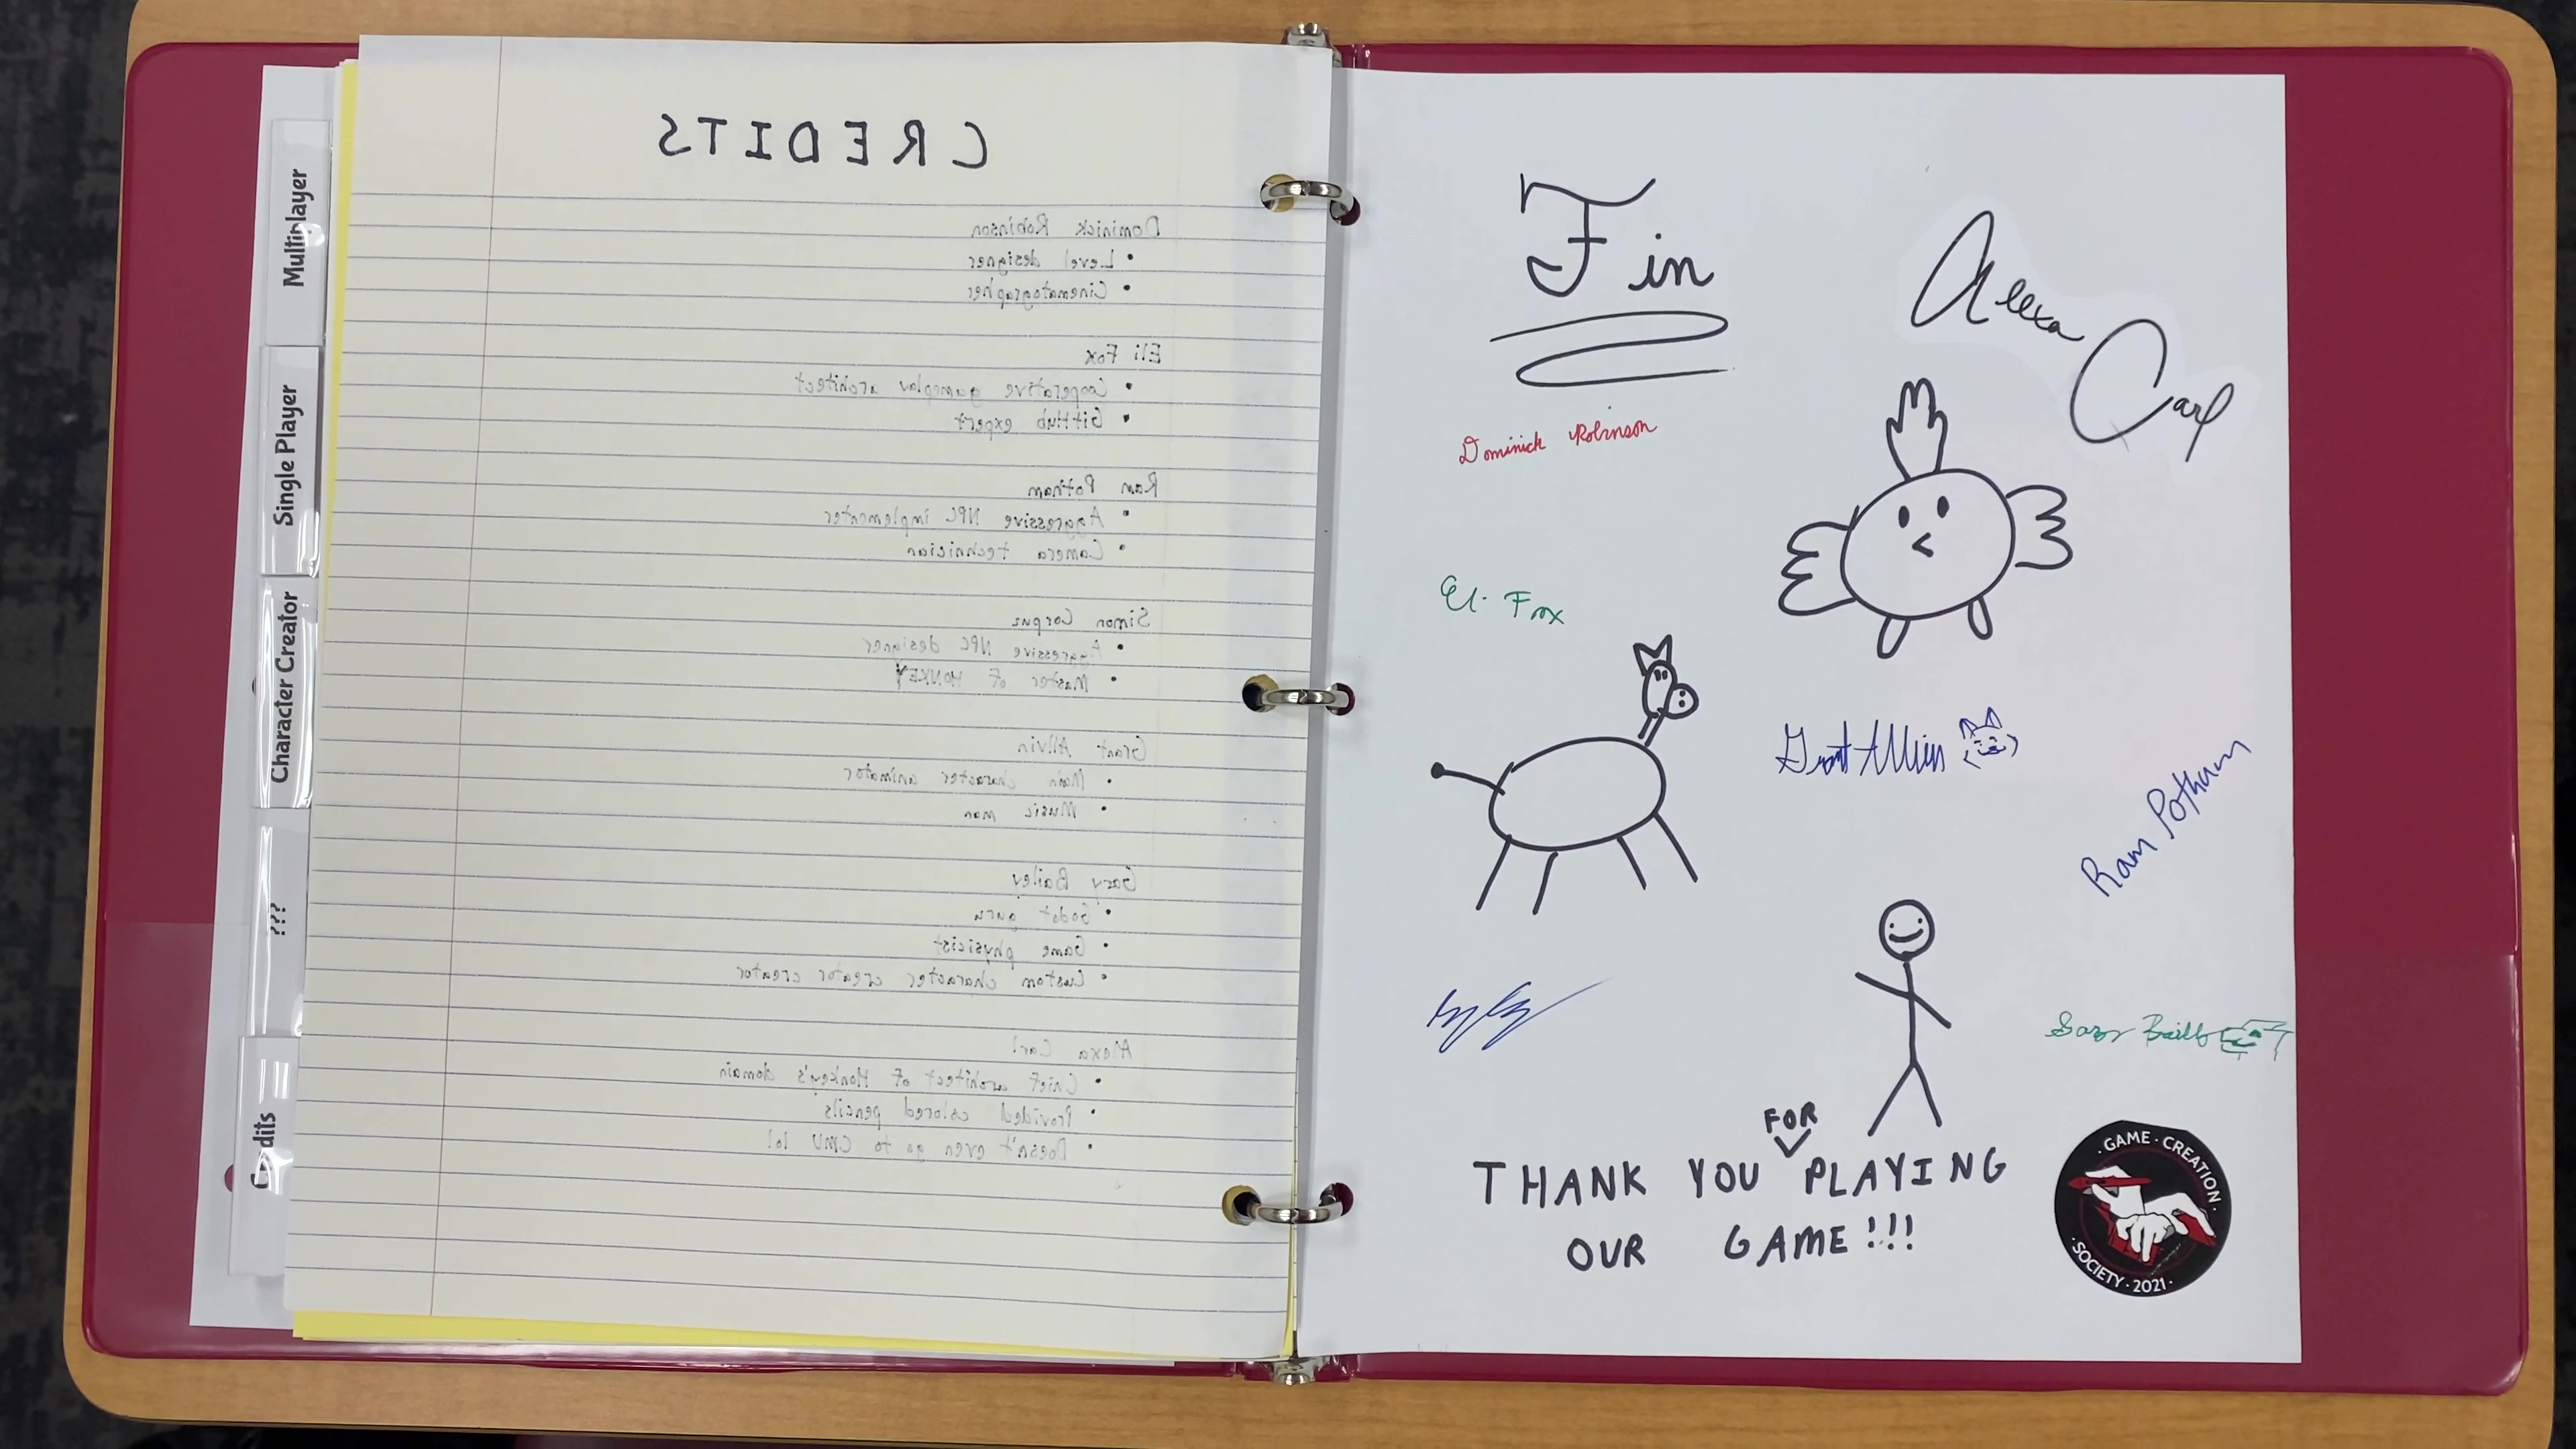 Multiplayer
Single Player
Character Creator
???
CREDITS
Dominick Robinson
• Level designer
• Cinematographer
Eli Fox
• Cooperative gameplay architect
• GitHub expert
Ram Potham
• Aggressive NPC implementer
• Camera technician
Simon Corpuz
• Aggressive NPC designer
• Master of MONKEY
Grant Allvin
• Main character animator
• Music man
Gary Bailey
• Godot guru
• Game physicist
• Custom character creator creator
Alexa Carl
• Chief architect of Monkey's domain
• Provided colored pencils
• Doesn't even go to CMU lol!
Fin
Alexa
Carl
Dominick Robinson
Eli Fox
Grant Allvin
Ram Potham
Gary Bailey
FOR
THANK YOU PLAYING
OUR GAME!!!
· GAME · CREATION ·
· SOCIETY · 2021 ·